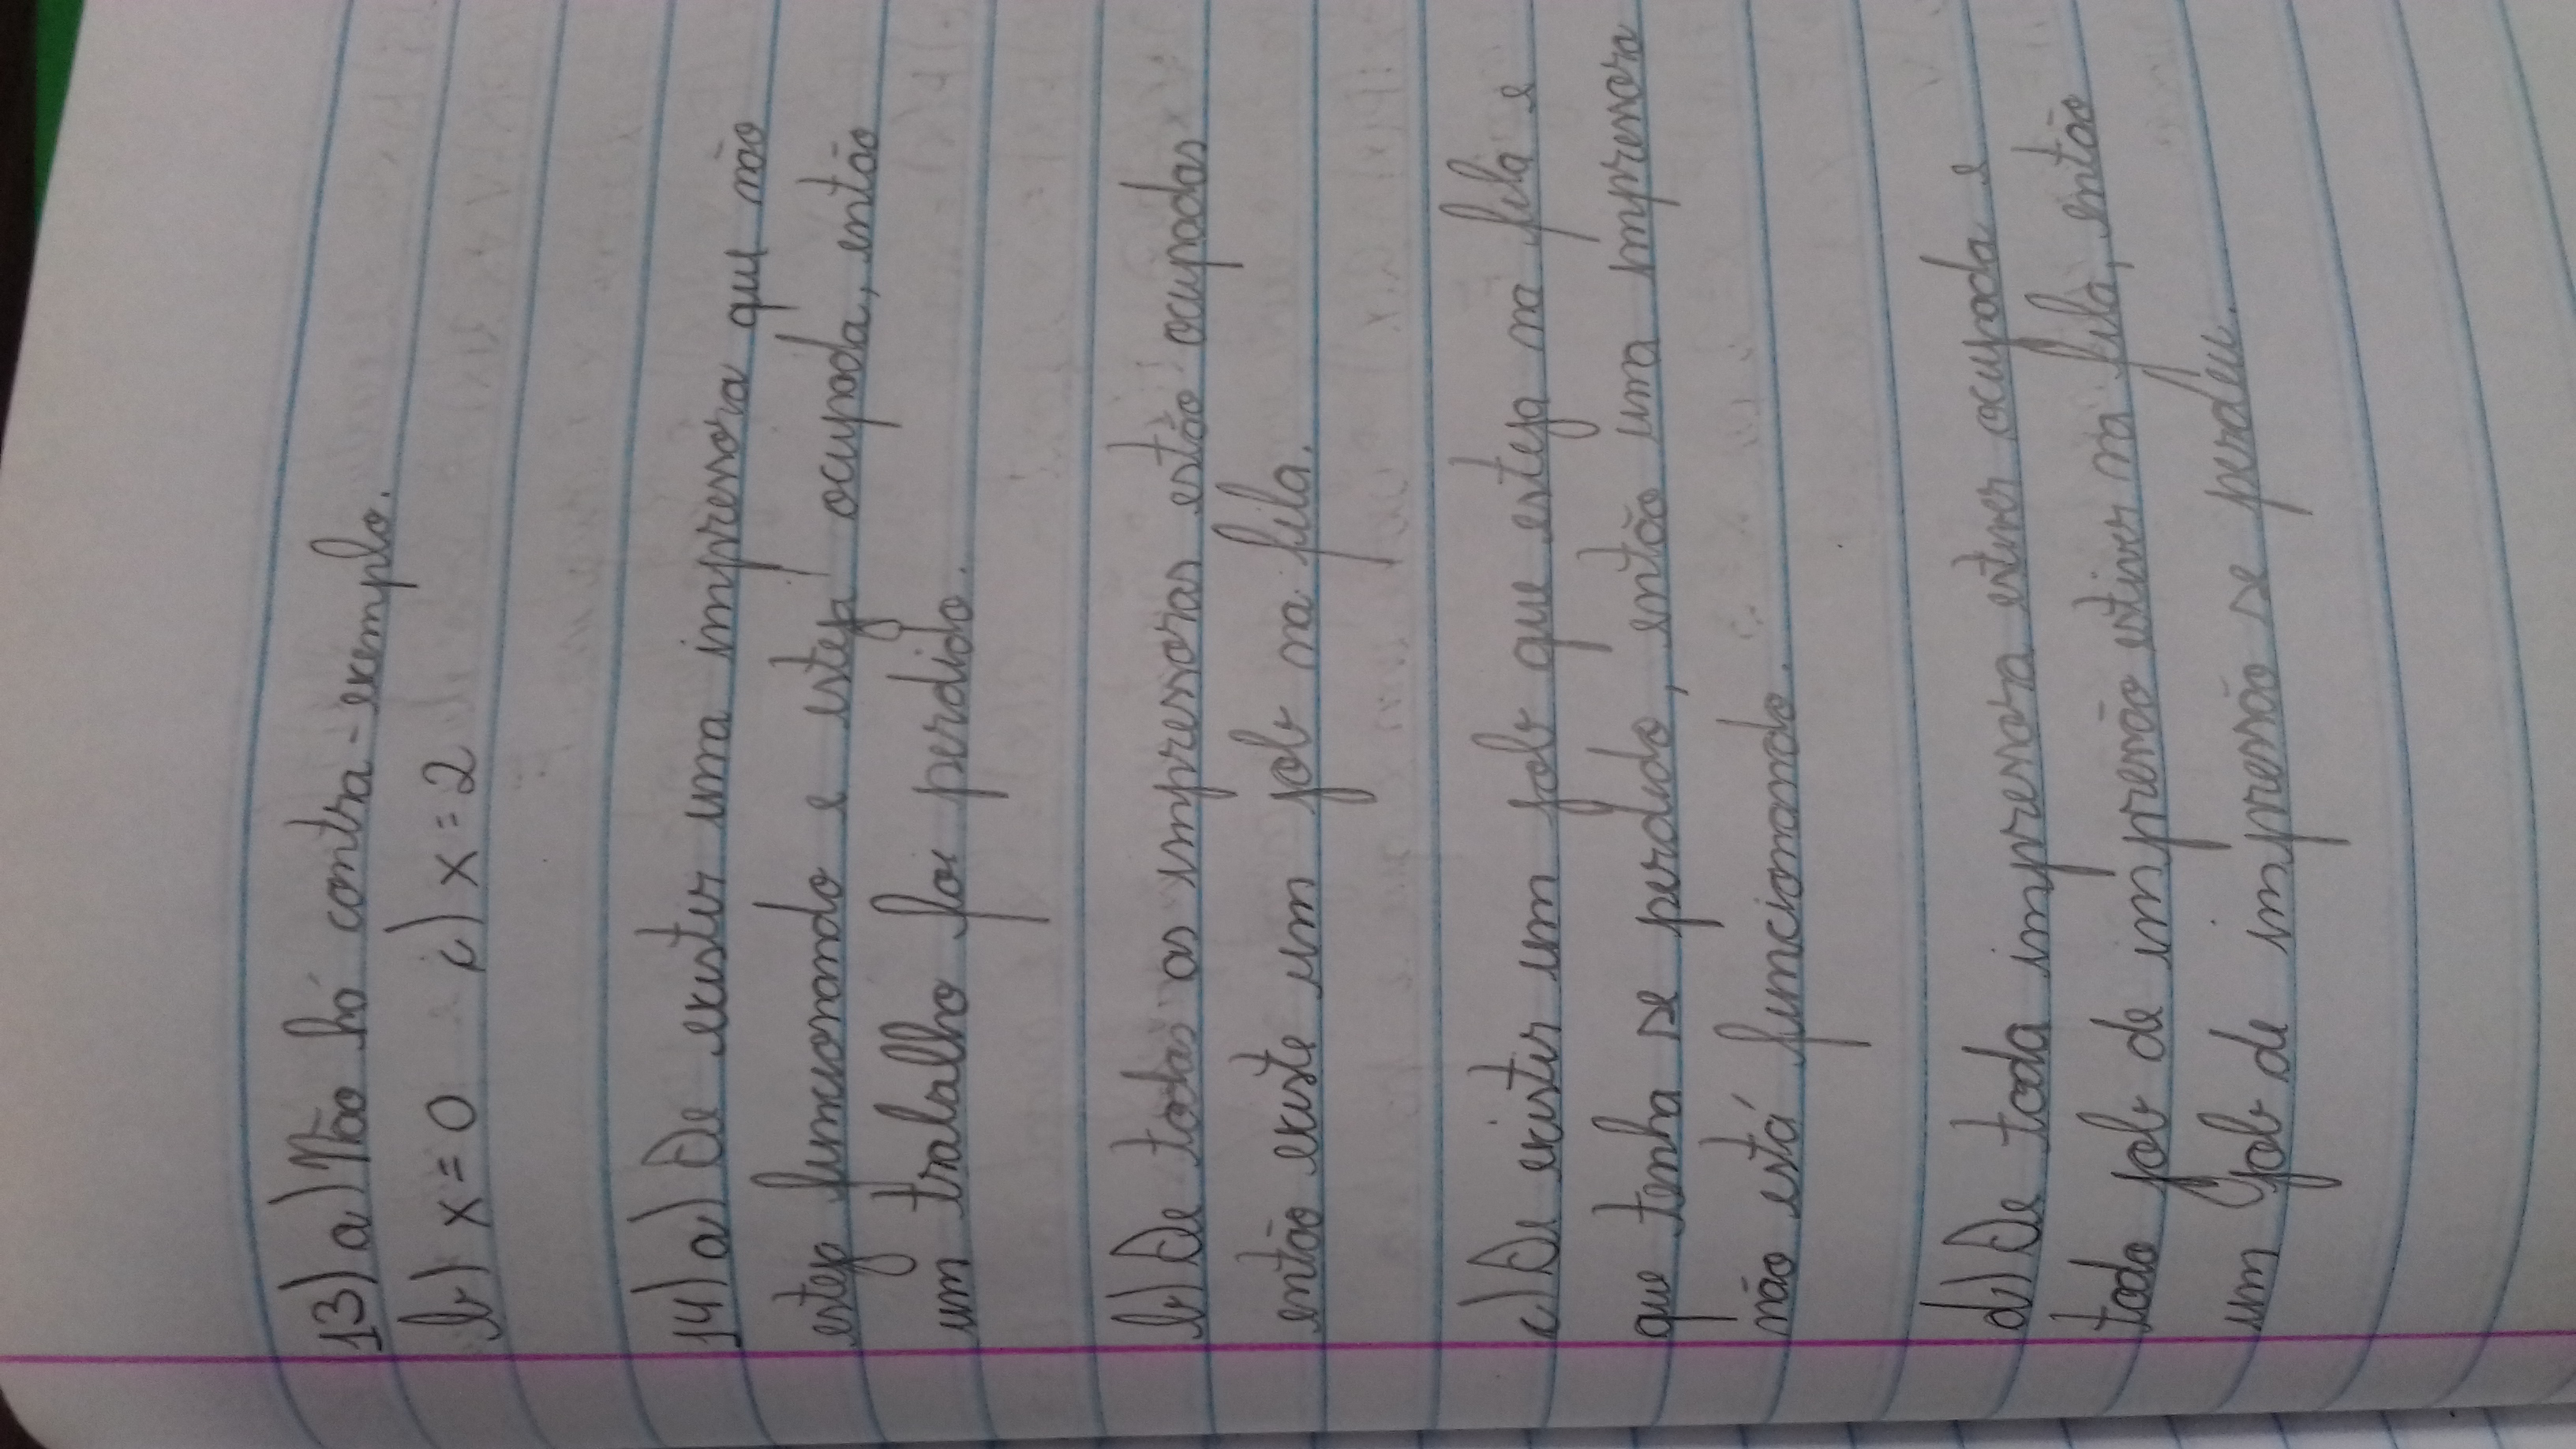 13) a) Não há contra-exemplo.
b) x = 0 c) x = 2
14) a) Se existir uma impressora que não
esteja funcionando e esteja ocupada, então
um trabalho foi perdido.
b) Se todas as impressoras estão ocupadas
então existe um job na fila.
c) Se existir um job que esteja na fila e
que tenha se perdido, então uma impressora
não está funcionando.
d) Se toda impressora estiver ocupada e
todo job de impressão estiver na fila, então
um job de impressão se perdeu.